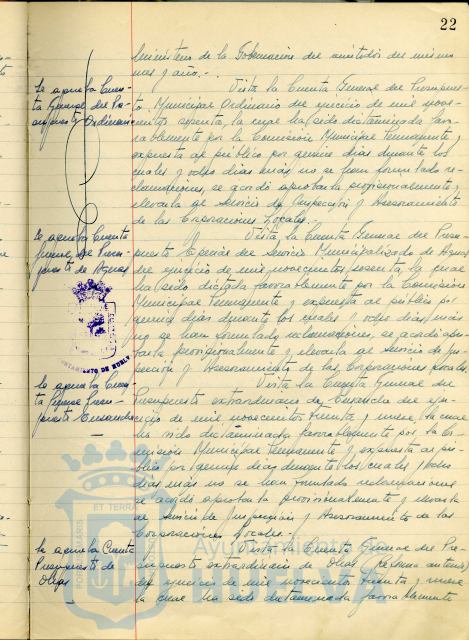 22
Ministerio de la Gobernación del
mes y año.-
Se aprueba Cuen-
ta General del Pre-
supuesto Ordinario
Vista la Cuenta General del Presupues-
to Municipal Ordinario del ejercicio de mil nove-
cientos sesenta, la cual ha sido dictaminada favo-
rablemente por la Comisión Municipal Permanente y
expuesta al público por quince días durante los
cuales y ocho días más no se han formulado re-
clamaciones, se acordó aprobarla provisionalmente y
elevarla al Servicio de Inspección y Asesoramiento
de las Corporaciones Locales.-
Se aprueba Cuenta
General del Presu-
puesto de Aguas
Vista la Cuenta General del Presu-
puesto Especial del Servicio Municipalizado de Aguas
del ejercicio de mil novecientos sesenta, la cual
ha sido dictada favorablemente por la Comisión
Municipal Permanente y expuesta al público por
quince días durante los cuales y ocho días más
no se han formulado reclamaciones, se acordó apro-
barla provisionalmente y elevarla al Servicio de Ins-
pección y Asesoramiento de las Corporaciones Locales.
AYUNTAMIENTO DE HUELVA
Se aprueba Cuen-
ta General Presu-
puesto Ensanche
Vista la Cuenta General del
Presupuesto extraordinario de Ensanche del ejer-
cicio de mil novecientos treinta y nueve, la cual
ha sido dictaminada favorablemente por la Co-
misión Municipal Permanente y expuesta al pú-
blico por quince días durante los cuales y ocho
días más no se han formulado reclamaciones
se acordó aprobarla provisionalmente y elevarla
al Servicio de Inspección y Asesoramiento de las
Corporaciones Locales.-
Se aprueba Cuenta
Presupuesto de
Obras
Vista la Cuenta General del Pre-
supuesto extraordinario de Obras
del ejercicio de mil novecientos treinta y nueve
la cual ha sido dictaminada favorablemente
ET TERRA
Ayuntamiento de
HUELVA